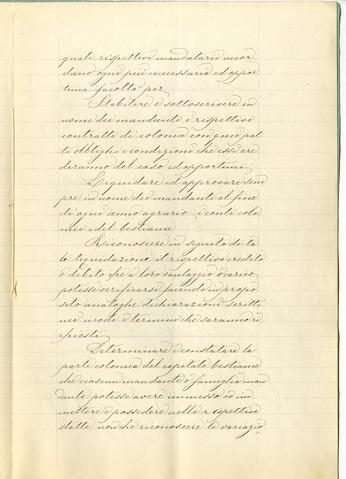 quali rispettivi mandatari accor
dano ogni più necessaria ed oppor
tuna facoltà per
Stabilire e sottoscrivere in
nome dei mandanti i rispettivi
contratti di colonia con quei pat
ti obblighi e condizioni che essi cre
deranno del caso ed opportuni.
Liquidare ed approvare sem
pre in nome dei mandanti al fine
di ogni anno agrario i conti colo
nici e del bestiame
Riconoscere in seguito di ta
le liquidazione il rispettivo credito
o debito che a loro vantaggio o carico
potesse verificarsi facendo in propo
sito analoghe dichiarazioni scritte
nei modi e termini che saranno ri
chiesti
Determinare e constatare la
parte colonica del capitale bestiame
che ciascun mandante o famiglia man
dante potesse avere immesso od im
mettere e possedere nelle rispettive
stalle, nonchè riconoscere le variazio